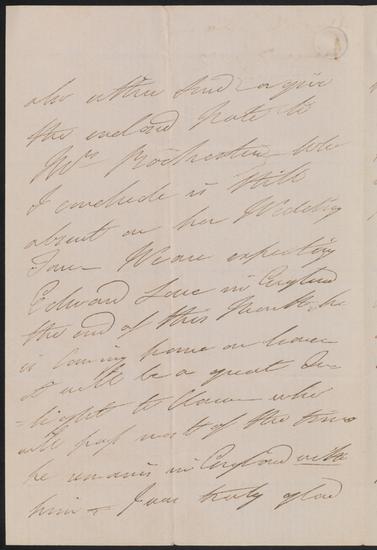 also either send or give
the enclosed Note to
Mrs Rochester who
I conclude is still
absent on her Wedding
Tour - We are expecting
Edward Love in England
the end of this Month, he
is coming home on leave
it will be a great De=
=light to Clara who
will pass most of the time
he remains in England with
him & I am truly glad